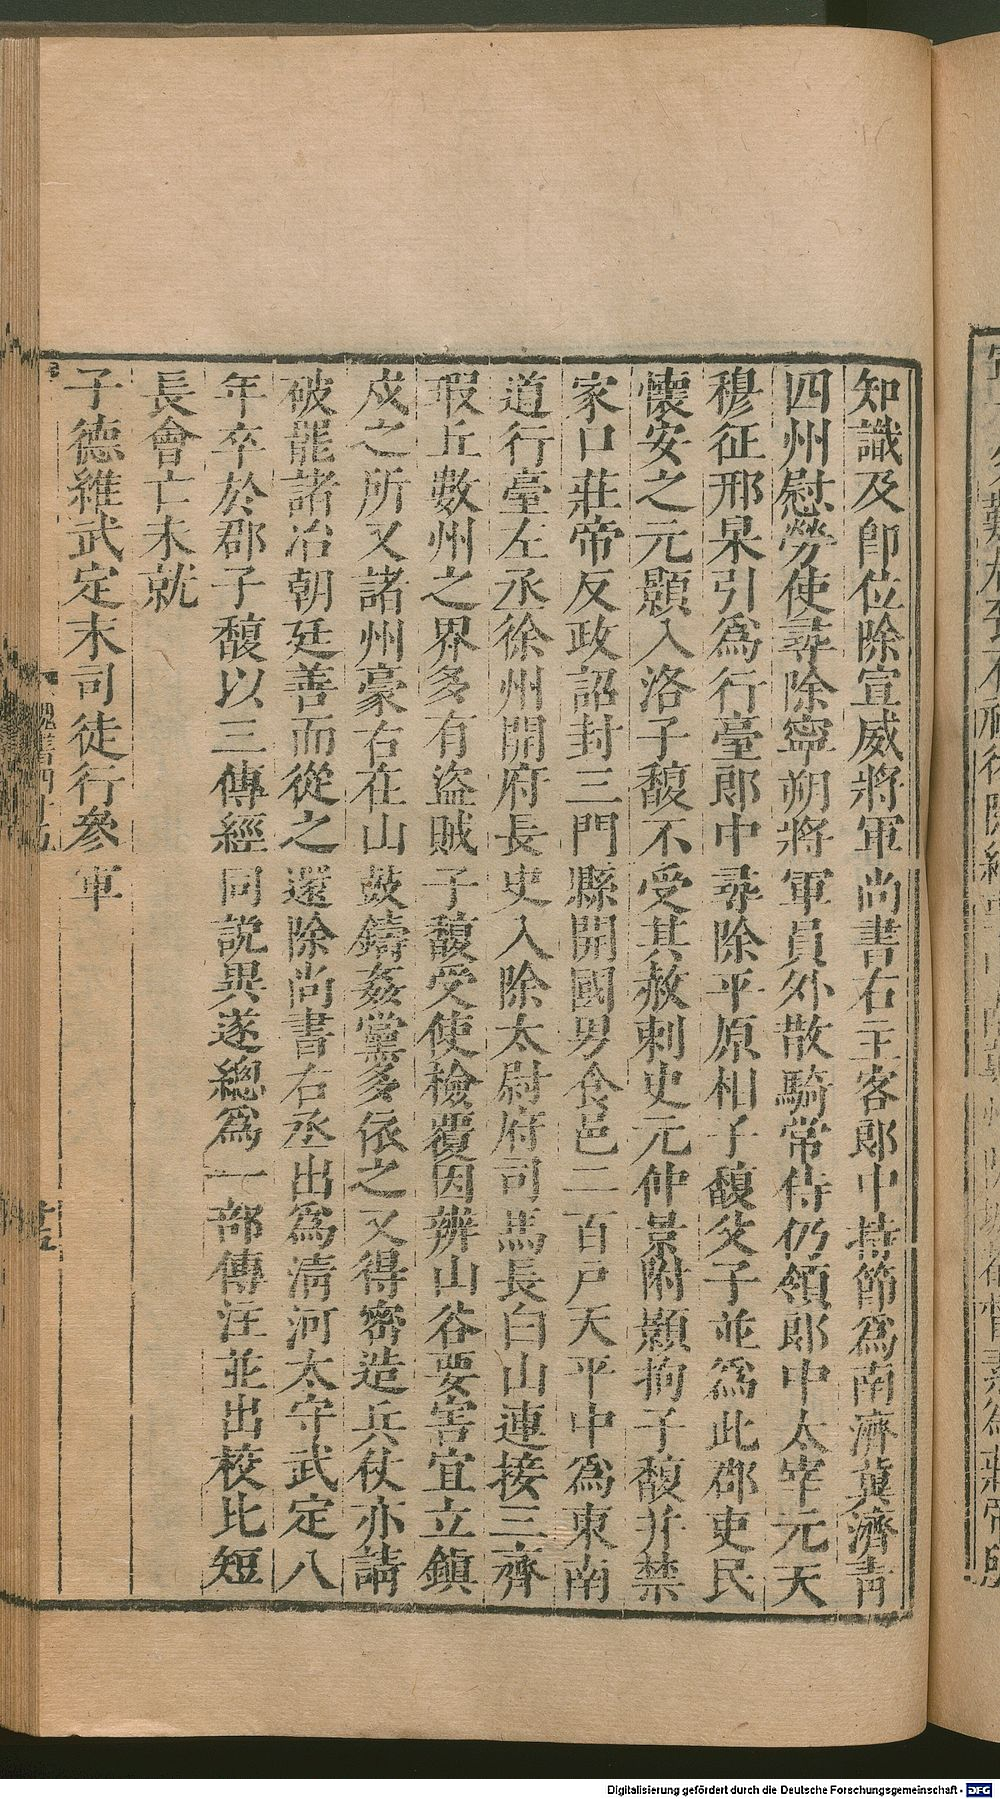 知識及卽位除宣威將軍尚書右主客郎中持節爲南濟冀濟青
四州慰勞使尋除寧朔將軍員外散騎常侍仍領郎中太宰元天
穆征邢杲引爲行臺郎中尋除平原相子馥父子並爲此郡吏民
懷安之元顥入洛子馥不受其赦刺史元仲景附顥拘子馥并禁
家口莊帝反政詔封三門縣開國男食邑二百戶天平中爲東南
道行臺左丞徐州開府長史入除太尉府司馬長白山連接三齊
瑕丘數州之界多有盜賊子馥受使檢覆因辨山谷要害宜立鎮
戍之所又諸州豪右在山鼓鑄姦黨多依之又得密造兵仗亦請
破罷諸冶朝廷善而從之還除尚書右丞出爲清河太守武定八
年卒於郡子馥以三傳經同說異遂總爲一部傳注並出校比短
長會亡未就
子德維武定末司徒行參軍
Digitalisierung gefördert durch die Deutsche Forschungsgemeinschaft - DFG